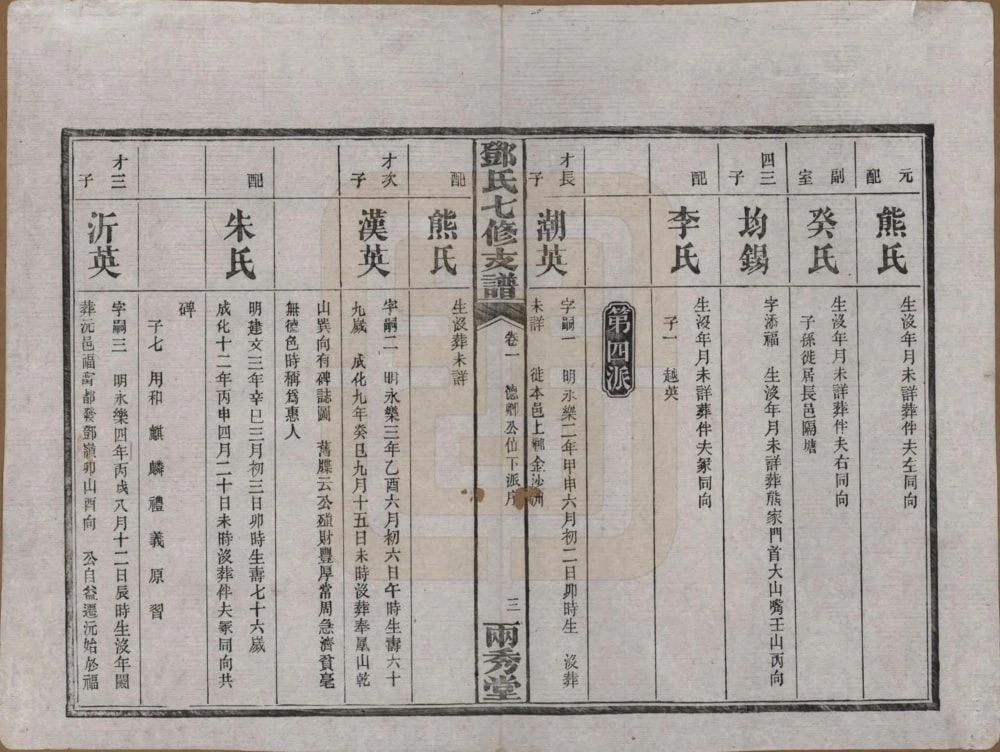 元配 熊氏 生沒年月未詳葬伴夫左同向
副室 癸氏 生沒年月未詳葬伴夫右同向
子孫徙居長邑隔塘
四三子 均錫 字添福 生沒年月未詳葬熊家門首大山嘴壬山丙向
配 李氏 生沒年月未詳葬伴夫冢同向
子一 越英
第四派
才長子 潮英 字嗣一 明永樂二年甲申六月初二日卯時生 沒葬
未詳 徙本邑上鄉金沙洲
鄧氏七修支譜 卷一 德卿公位下派序 三 兩秀堂
配 熊氏 生沒葬未詳
才次子 漢英 字嗣二 明永樂三年乙酉六月初六日午時生壽六十
九歲 成化九年癸巳九月十五日未時沒葬奉鳳山乾
山巽向有碑誌圖 舊牒云公殖財豐厚常周急濟貧毫
無德色時稱爲惠人
配 朱氏 明建文三年辛巳三月初三日卯時生壽七十六歲
成化十二年丙申四月二十日未時沒葬伴夫冢同向共
碑
子七 用和 麒 麟 禮 義 原 習
才三子 沂英 字嗣三 明永樂四年丙戌八月十二日辰時生沒年闕
葬沅邑福壽都發鄧嶺卯山酉向 公自益遷沅始居福